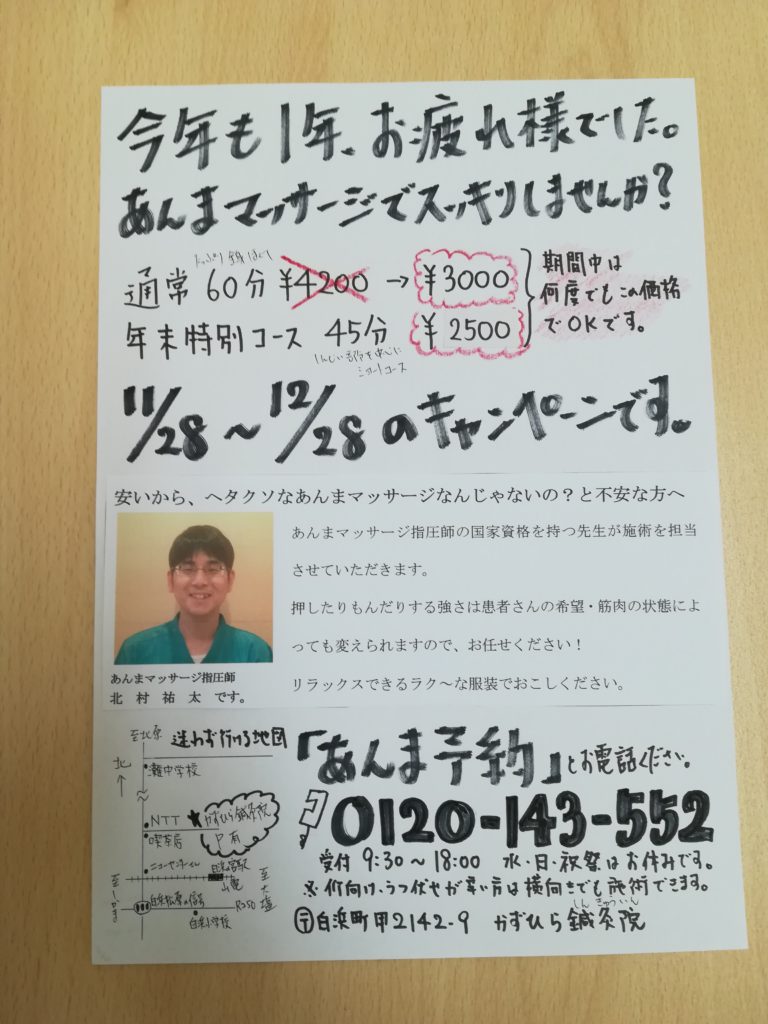 今年も1年、お疲れ様でした。
あんまマッサージでスッキリしませんか?
通常 60分 ¥4200 → ¥3000
年末特別コース 45分 ¥2500
ショートコース
期間中は
何度でもこの価格
でOKです。
11/28～12/28のキャンペーンです。
安いから、ヘタクソなあんまマッサージなんじゃないの？と不安な方へ
あんまマッサージ指圧師の国家資格を持つ先生が施術を担当
させていただきます。
押したりもんだりする強さは患者さんの希望・筋肉の状態によ
っても変えられますので、お任せください！
リラックスできるラク～な服装でおこしください。
あんまマッサージ指圧師
北 村 祐 太 です。
至北原 迷わず行ける地図
北
灘中学校
NTT ★かずひら鍼灸院
喫茶店 P有
白浜の宮駅
山電
至大塩
R250
白浜小学校
「あんま予約」とお電話ください。
0120-143-552
受付 9:30～18:00 水・日・祝祭はお休みです。
※仰向け・うつ伏せが辛い方は横向きでも施術できます。
〒白浜町甲2142-9 かずひら鍼灸院
しんきゅういん